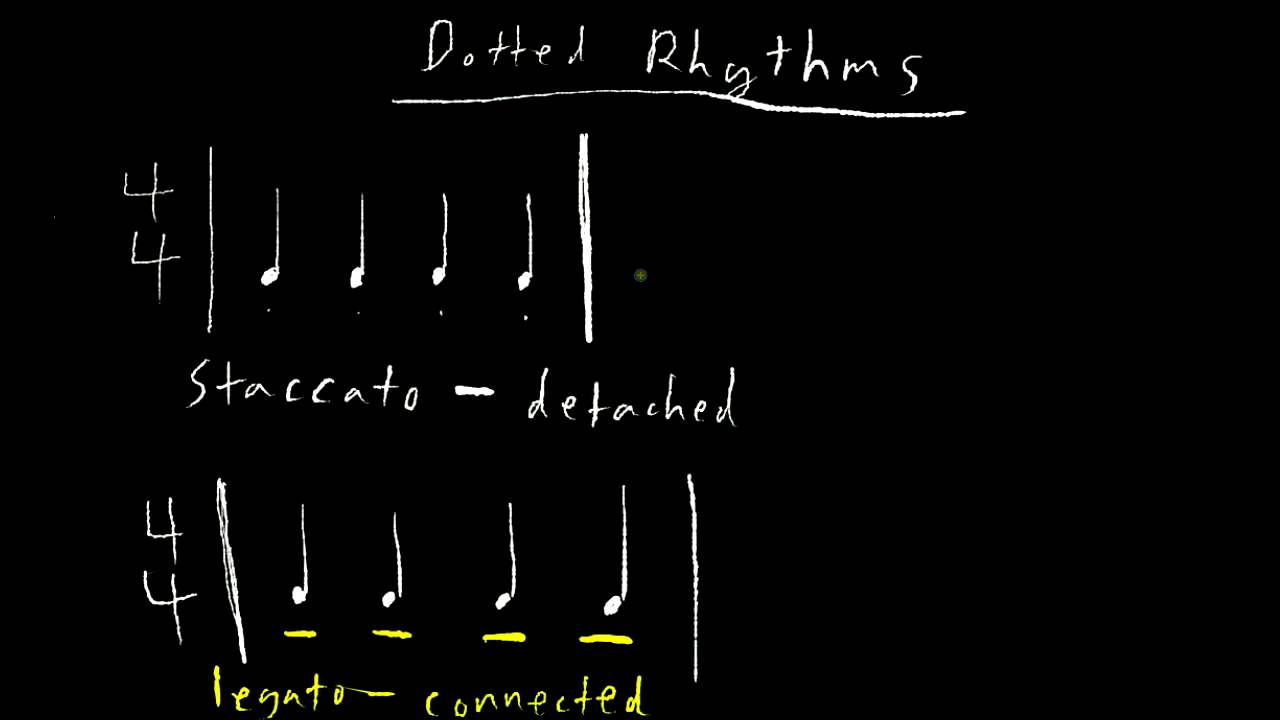 Dotted Rhythms
4
4
Staccato - detached
4
4
legato - connected